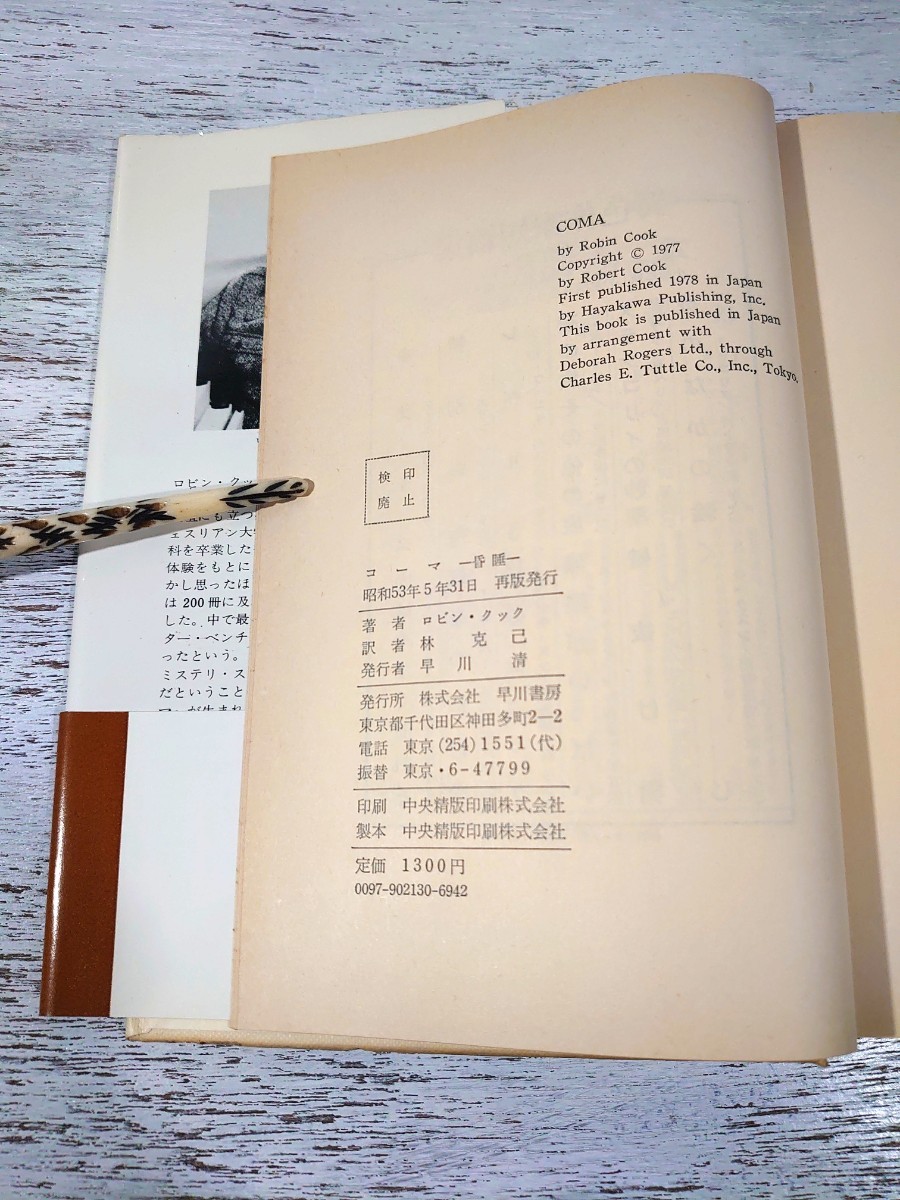 COMA
by Robin Cook
Copyright © 1977
by Robert Cook
First published 1978 in Japan
by Hayakawa Publishing, Inc.
This book is published in Japan
by arrangement with
Deborah Rogers Ltd., through
Charles E. Tuttle Co., Inc., Tokyo.
検印
廃止
コーマ —昏睡—
昭和53年5年31日 再版発行
著者 ロビン・クック
訳者 林 克己
発行者 早川 清
発行所 株式会社 早川書房
東京都千代田区神田多町2—2
電話 東京(254)1551(代)
振替 東京・6-47799
印刷 中央精版印刷株式会社
製本 中央精版印刷株式会社
定価 1300円
0097-902130-6942
ロビン・クッ
にも立つ
ェスリアン大
科を卒業した
体験をもとに
かし思ったほ
は200冊に及
した。中で最
ター・ベンチ
ったという。
ミステリ・ス
だということ
が生まれ